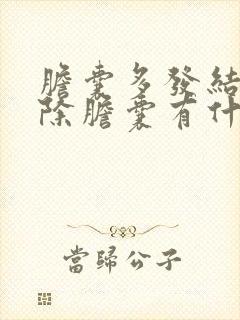 膽囊多發結
除膽囊有什
當歸公子